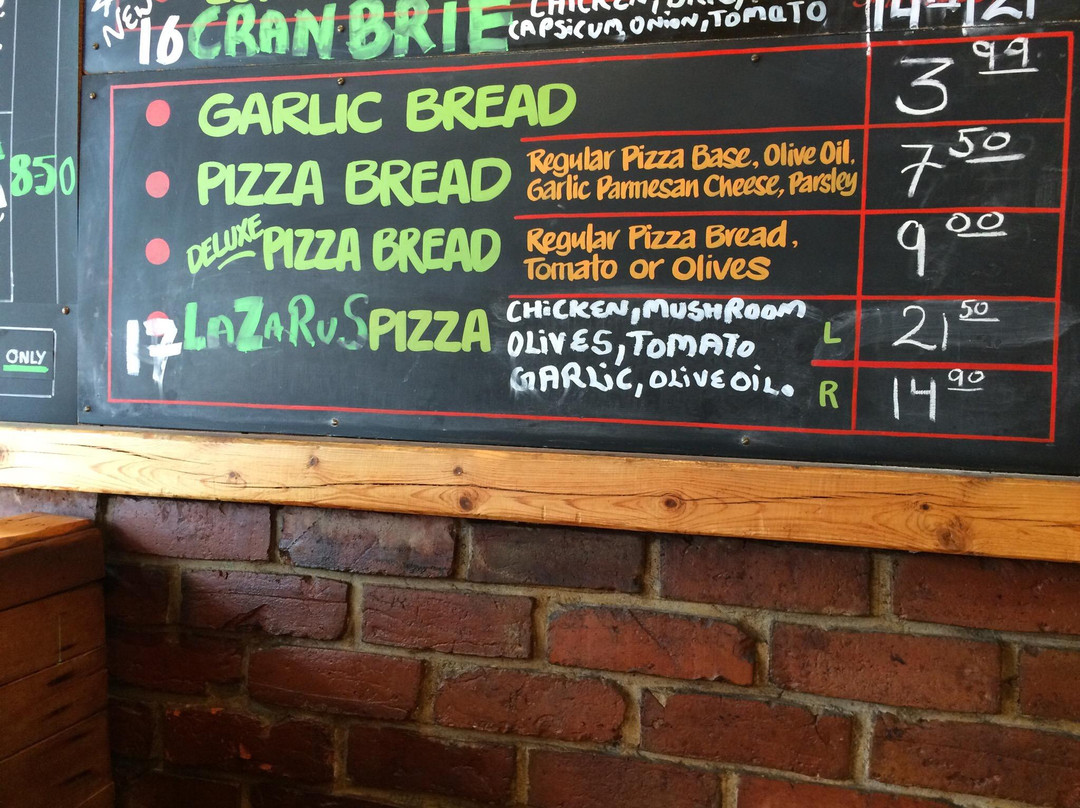 NEW
16 CRANBRIE
CAPSICUM, ONION, TOMATO
GARLIC BREAD 3 99
850
PIZZA BREAD Regular Pizza Base, Olive Oil, 7 50
Garlic Parmesan Cheese, Parsley
DELUXE PIZZA BREAD Regular Pizza Bread, 9 00
Tomato or Olives
17 LAZARUS PIZZA CHICKEN, MUSHROOM
OLIVES, TOMATO L 21 50
GARLIC, OLIVE OIL. R 14 90
ONLY